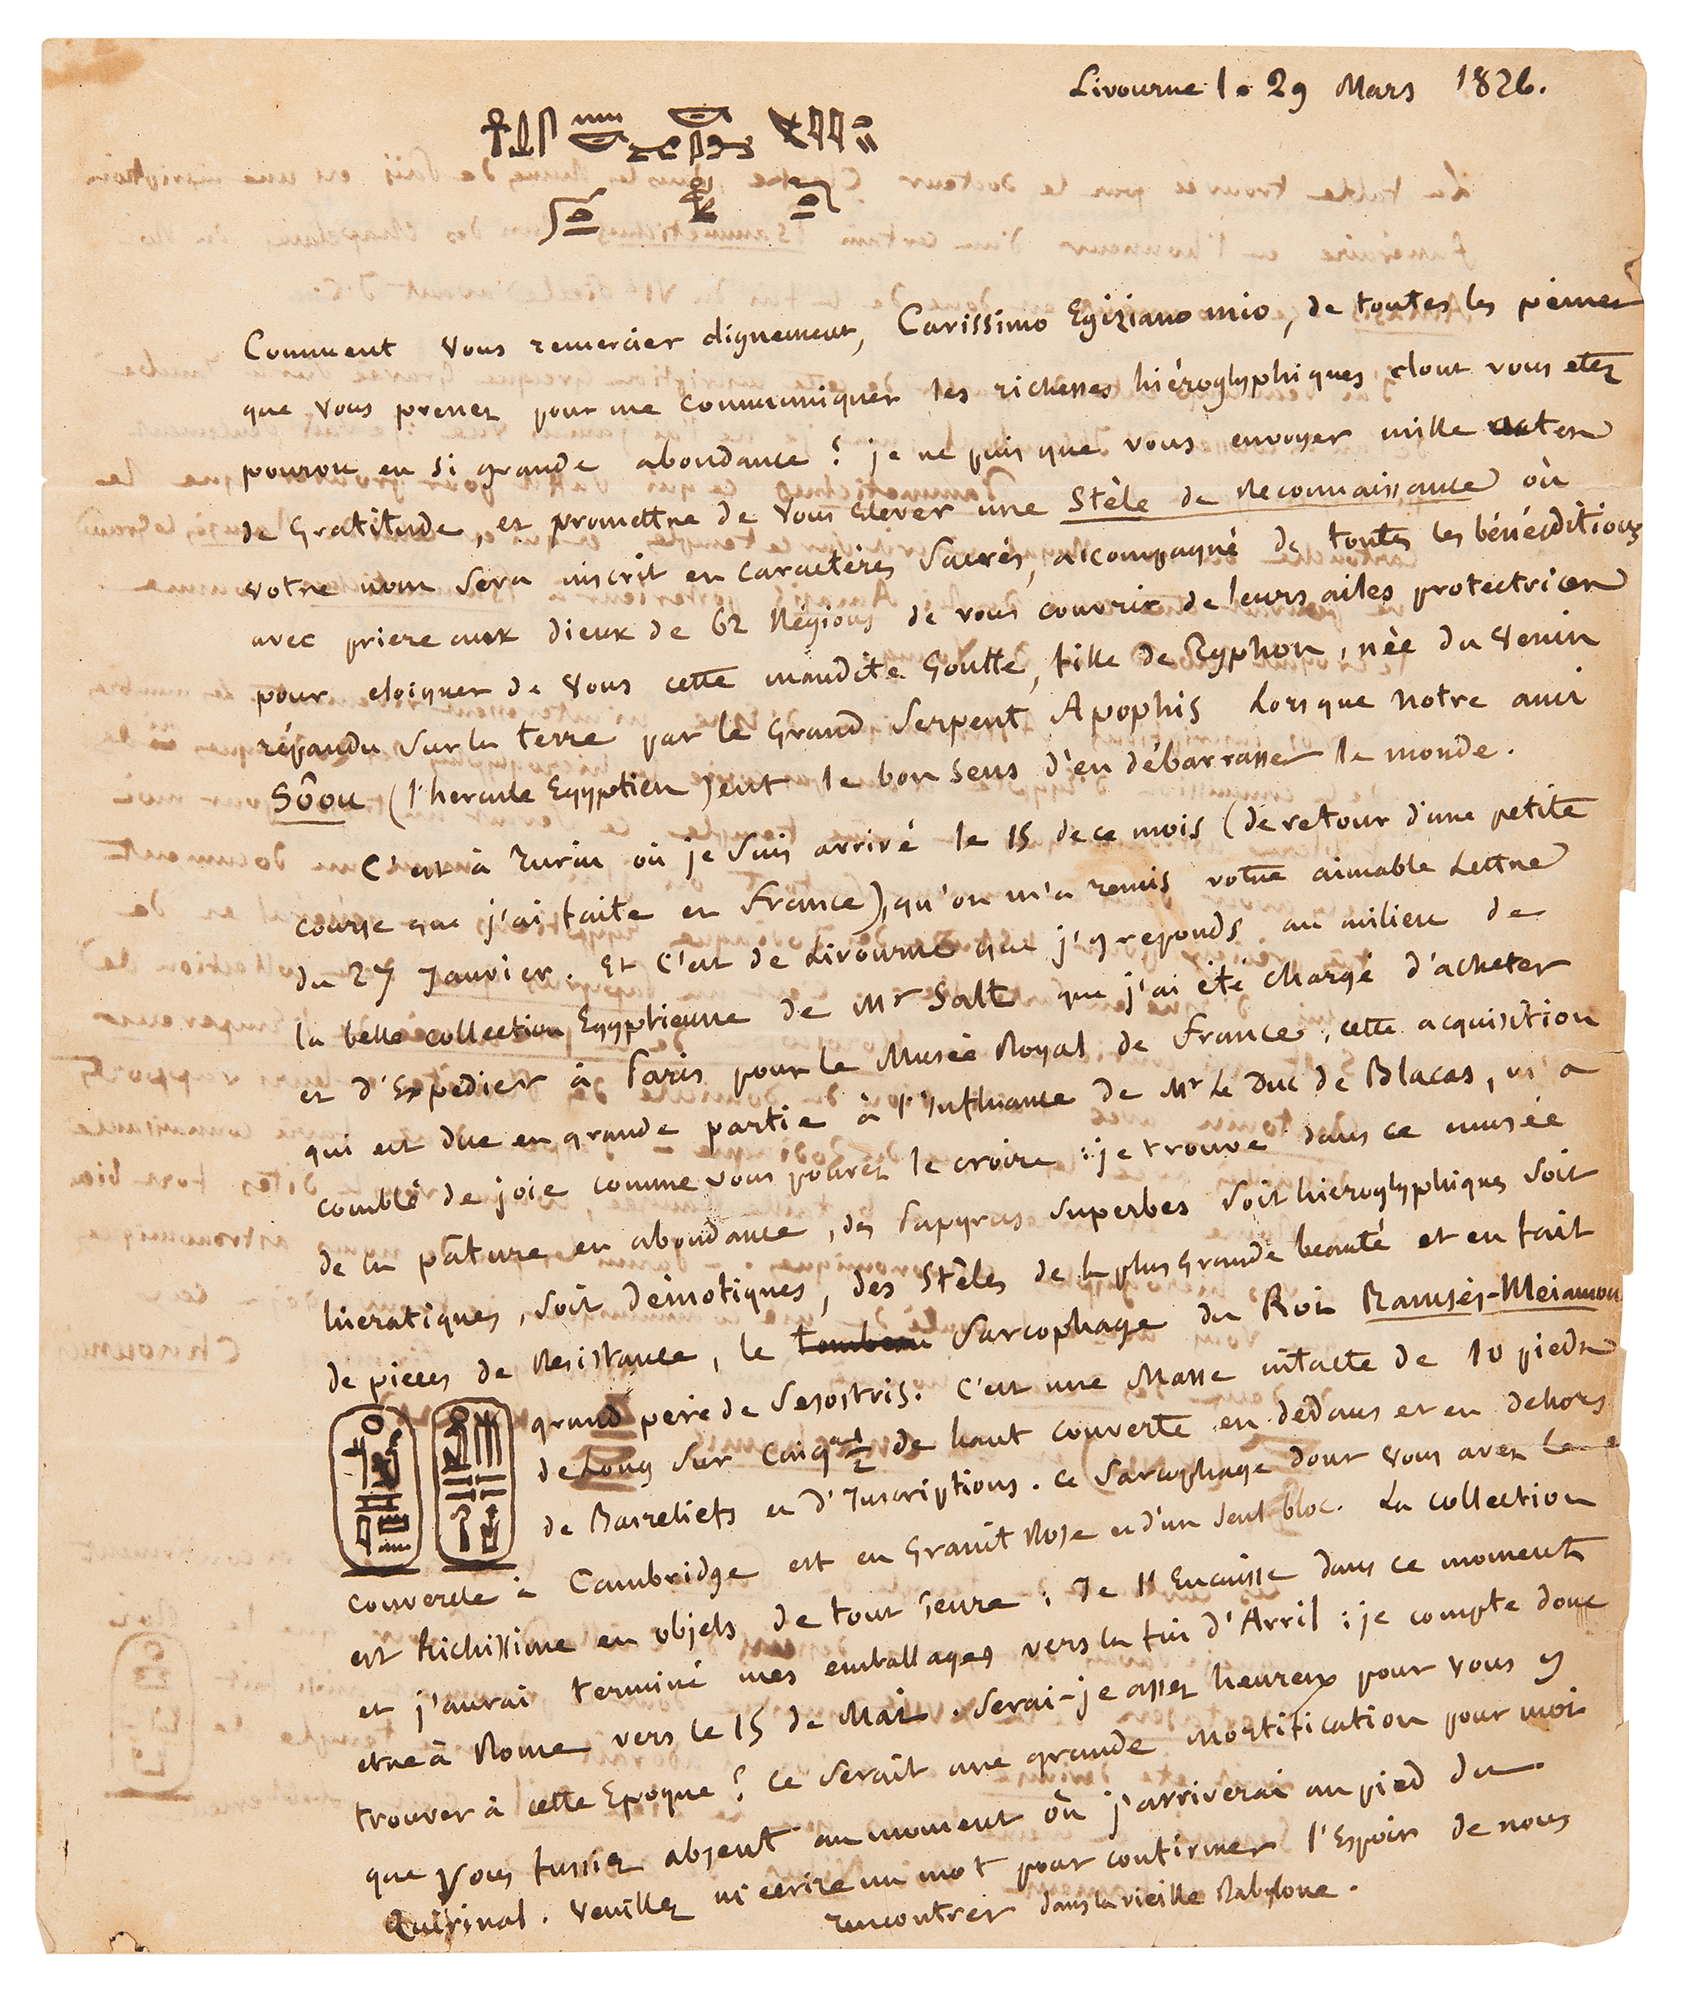 Livourne le 29 Mars 1826.
Comment vous remercier dignement, Carissimo Egiziano mio, de toutes les peines
que vous prenez pour me communiquer les richesses hiéroglyphiques dont vous etez
pourvu en si grande abondance ? je ne puis que vous envoyer mille actes
de Gratitude, et promettre de vous elever une Stèle de Reconnaissance où
votre nom sera inscrit en caractères sacrés, accompagné de toutes les bénéditions
avec priere aux dieux de 62 Régions de vous couvrir de leurs ailes protectrices
pour eloigner de vous cette maudite Goutte, fille de Typhon, née du venin
répandu sur la terre par le Grand Serpent Apophis lorsque notre ami
Sôou (l'hercule Egyptien) eut le bon sens d'en débarrasser le monde.
C'est à Turin où je suis arrivé le 15 de ce mois (de retour d'une petite
course que j'ai faite en France), qu'on m'a remis votre aimable Lettre
du 27 Janvier. Et C'est de Livourne que j'y reponds au milieu de
la belle collection Egyptienne de Mr Salt que j'ai été chargé d'acheter
et d'Expedier à Paris pour le Musée Royal de France. cette acquisition
qui est due en grande partie à l'Influance de Mr Le Duc de Blacas, m'a
comblé de joie comme vous pouvez le croire : je trouve dans ce musée
de la pâture en abondance, des Papyrus superbes soit hieroglyphiques soit
hieratiques, soit démotiques, des Stèles de la plus Grande beauté et en fait
de pieces de Resistance, le tombeau Sarcophage du Roi Ramsès-Méiamoun
grand pere de Sesostris. C'est une Masse intacte de 10 pieds
de Long sur Cinq et 1/2 de haut couverte en dedans et en dehors
de Basreliefs et d'Inscriptions. ce Sarcophage dont vous avez le
couvercle à Cambridge est en Granit Rose et d'un seul bloc. La collection
est Richissime en objets de tout Genre : Je l'Encaisse dans ce moment
et j'aurai terminé mes emballages vers la fin d'Avril : je compte donc
etre à Rome vers le 15 de Mai. Serai-je assez heureux pour vous y
trouver à cette Epoque ? Ce serait une grande mortification pour moi
que vous fussiez absent au moment où j'arriverai au pied du
Quirinal. Veuillez m'ecrire un mot pour confirmer l'Espoir de nous
rencontrer dans la vieille Babylone.